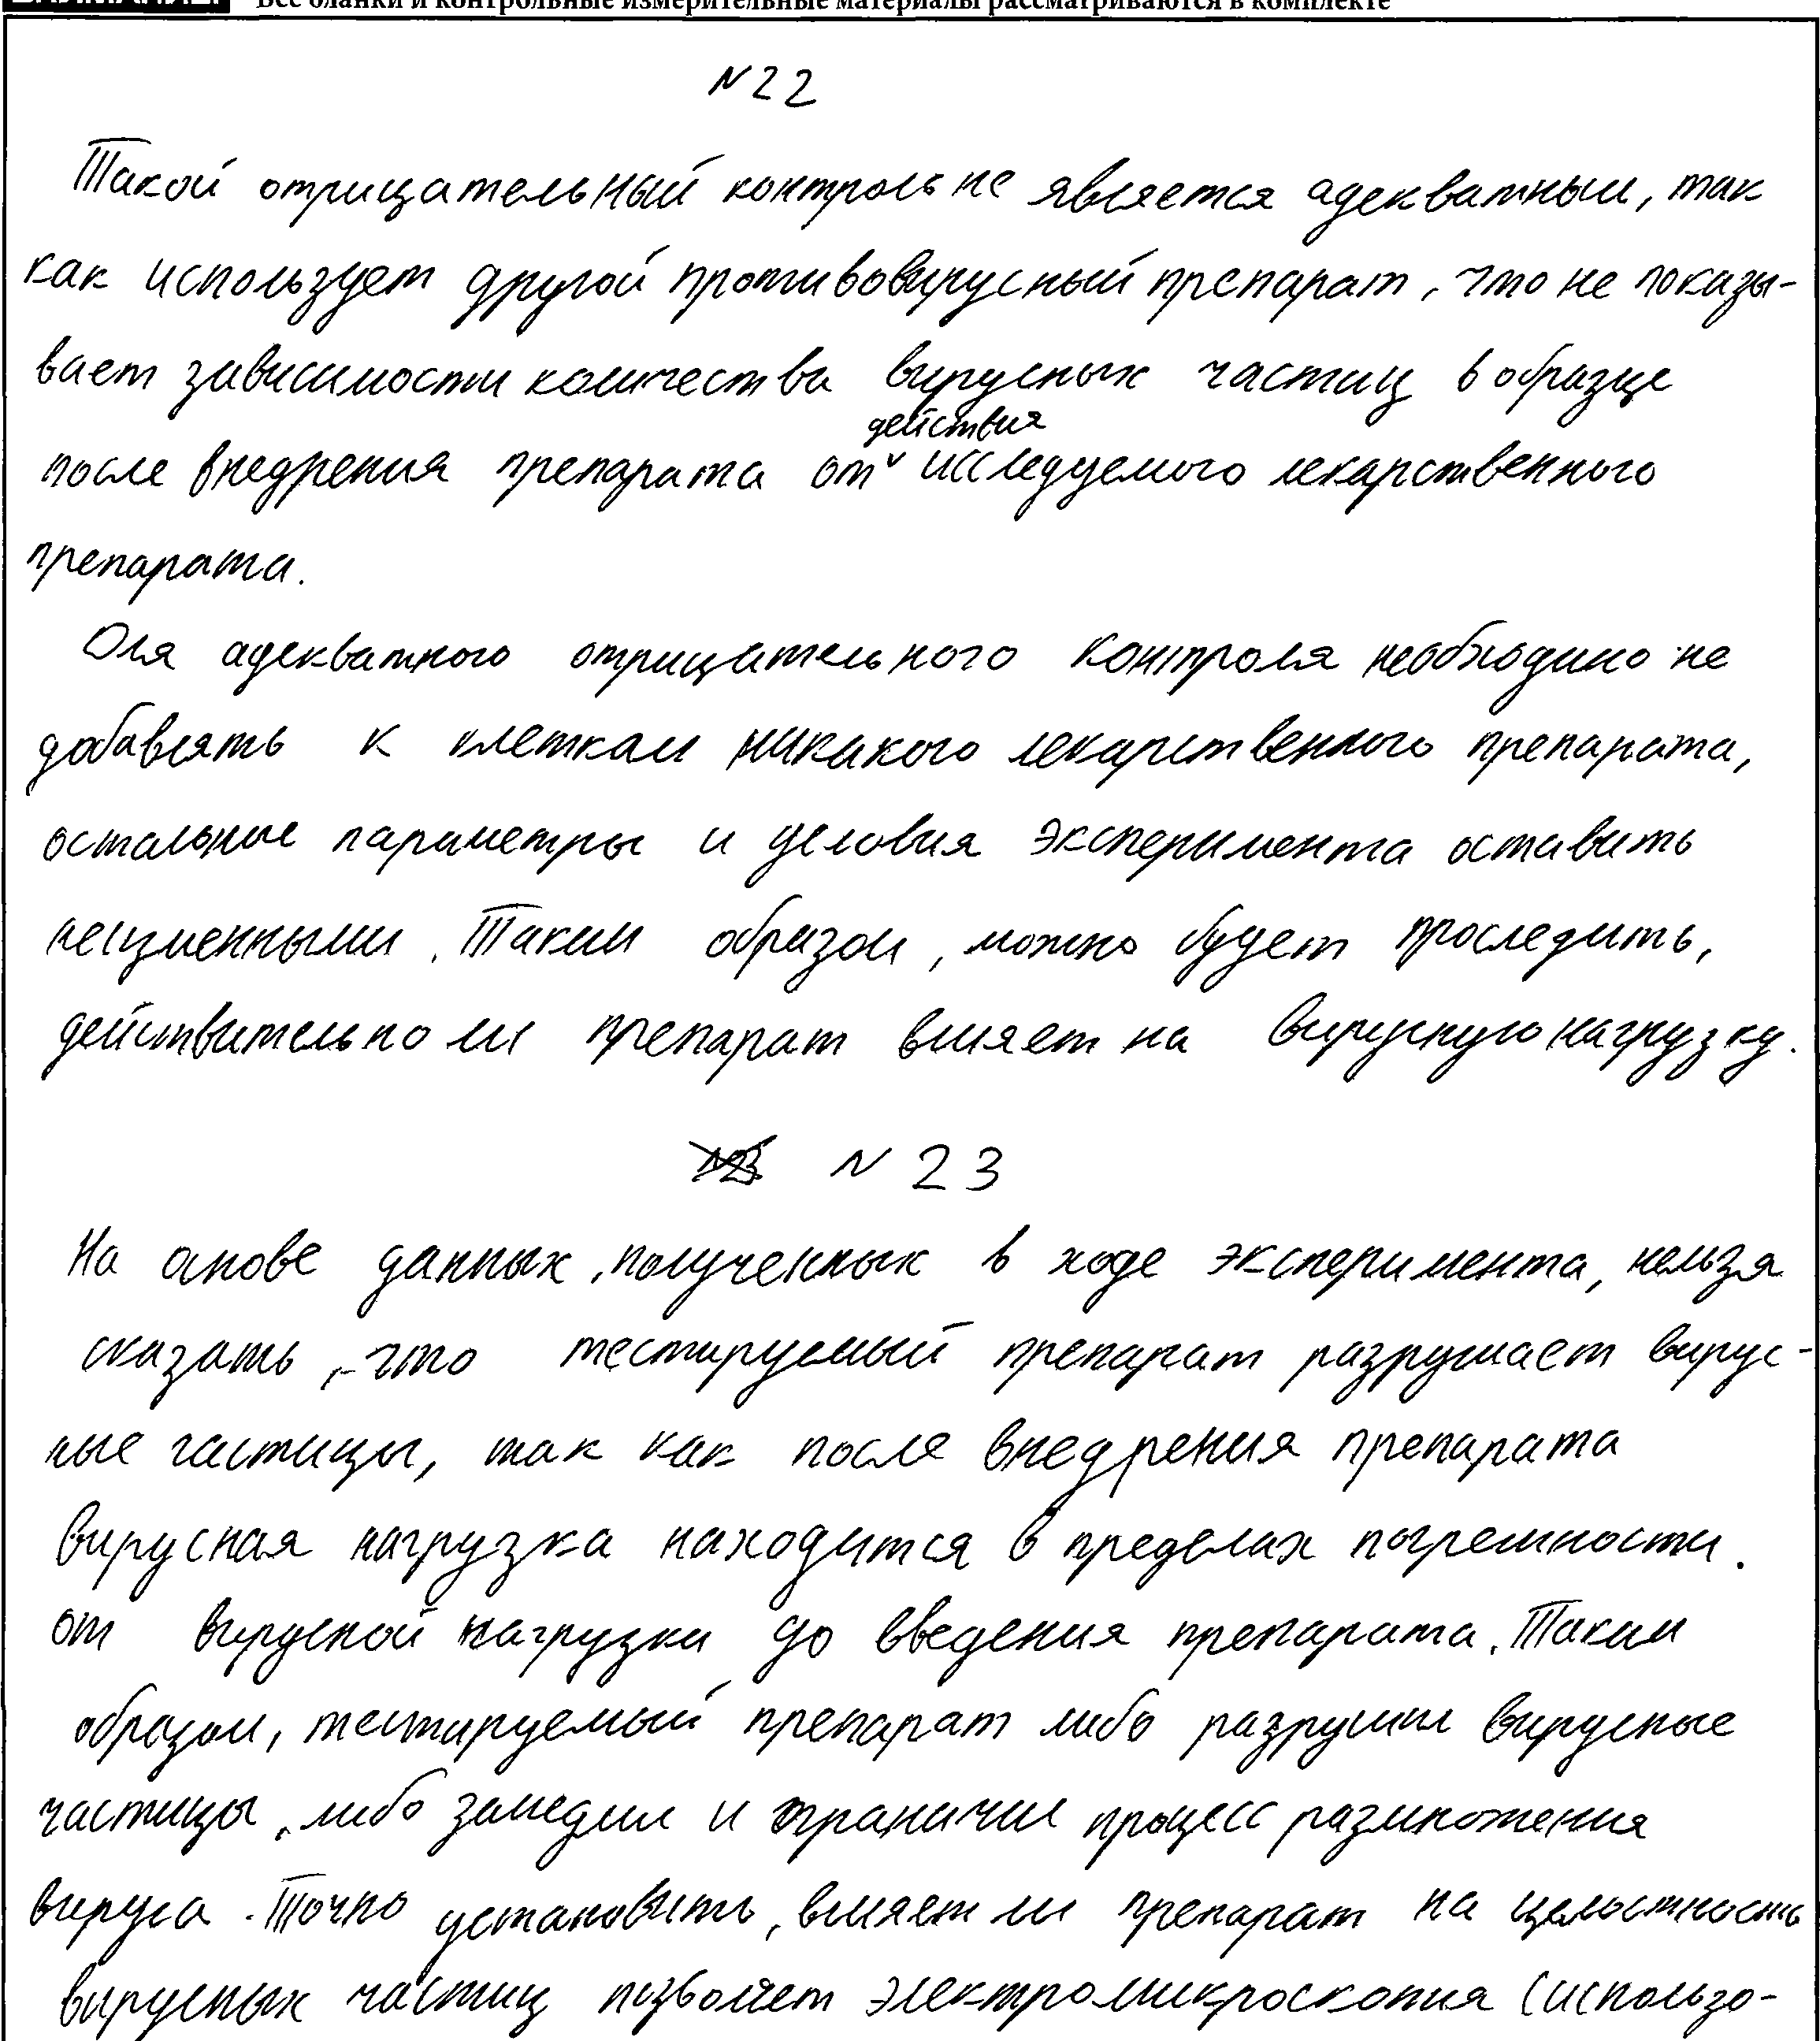 Все бланки и контрольные измерительные материалы рассматриваются в комплекте
№22
Такой отрицательный контроль не является адекватным, так
как использует другой противовирусный препарат, что не показы-
вает зависимости количества вирусных частиц в образце
действия
после внедрения препарата от исследуемого лекарственного
препарата.
Для адекватного отрицательного контроля необходимо не
добавлять к клеткам никакого лекарственного препарата,
остальные параметры и условия эксперимента оставить
неизменными. Таким образом, можно будет проследить,
действительно ли препарат влияет на вирусную нагрузку.
№23
На онове данных, полученных в ходе эксперимента, нельзя
сказать, что тестируемый препарат разрушает вирус-
ные частицы, так как после внедрения препарата
вирусная нагрузка находится в пределах погрешности.
от вирусной нагрузки до введения препарата. Таким
образом, тестируемый препарат либо разрушил вирусные
частицы, либо замедлил и ограничил процесс размножения
вируса. Точно установить, влияет ли препарат на целостность
вирусных частиц позволяет электромикроскопия (использо-